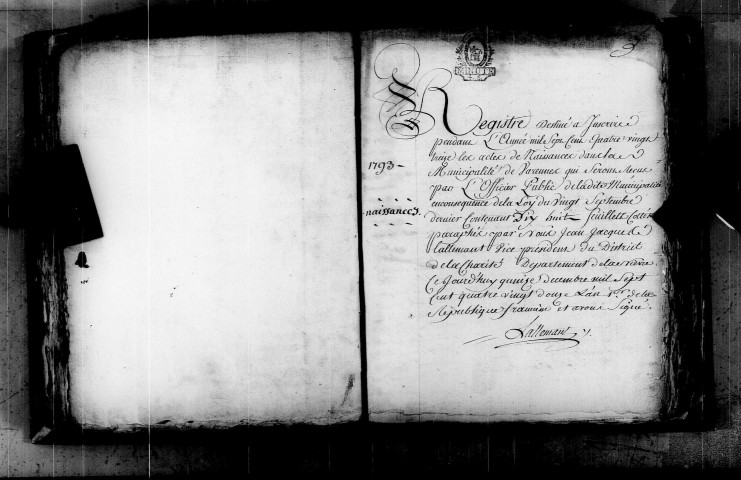 Registre Destiné a Inscrire
pendant L'Année mil Sept Cent Quatre vingt
treize les actes de Naissances dans la
1793 - Municipalité de Varennes qui Seront Reçus
par L'Officier Public de la dite Municipalité
naissances. en consequence de la Loy du vingt Septembre
dernier Contenant Dix huit feuillets Cottés
paraphés par Nous Jean Jacques
Lallemant Vice président du District
de la Charité Département de la nièvre
Ce Jourd'huy quinze decembre mil Sept
Cent quatre vingt douze L'an 1er de la
République francaise et avons Signé
Lallemant